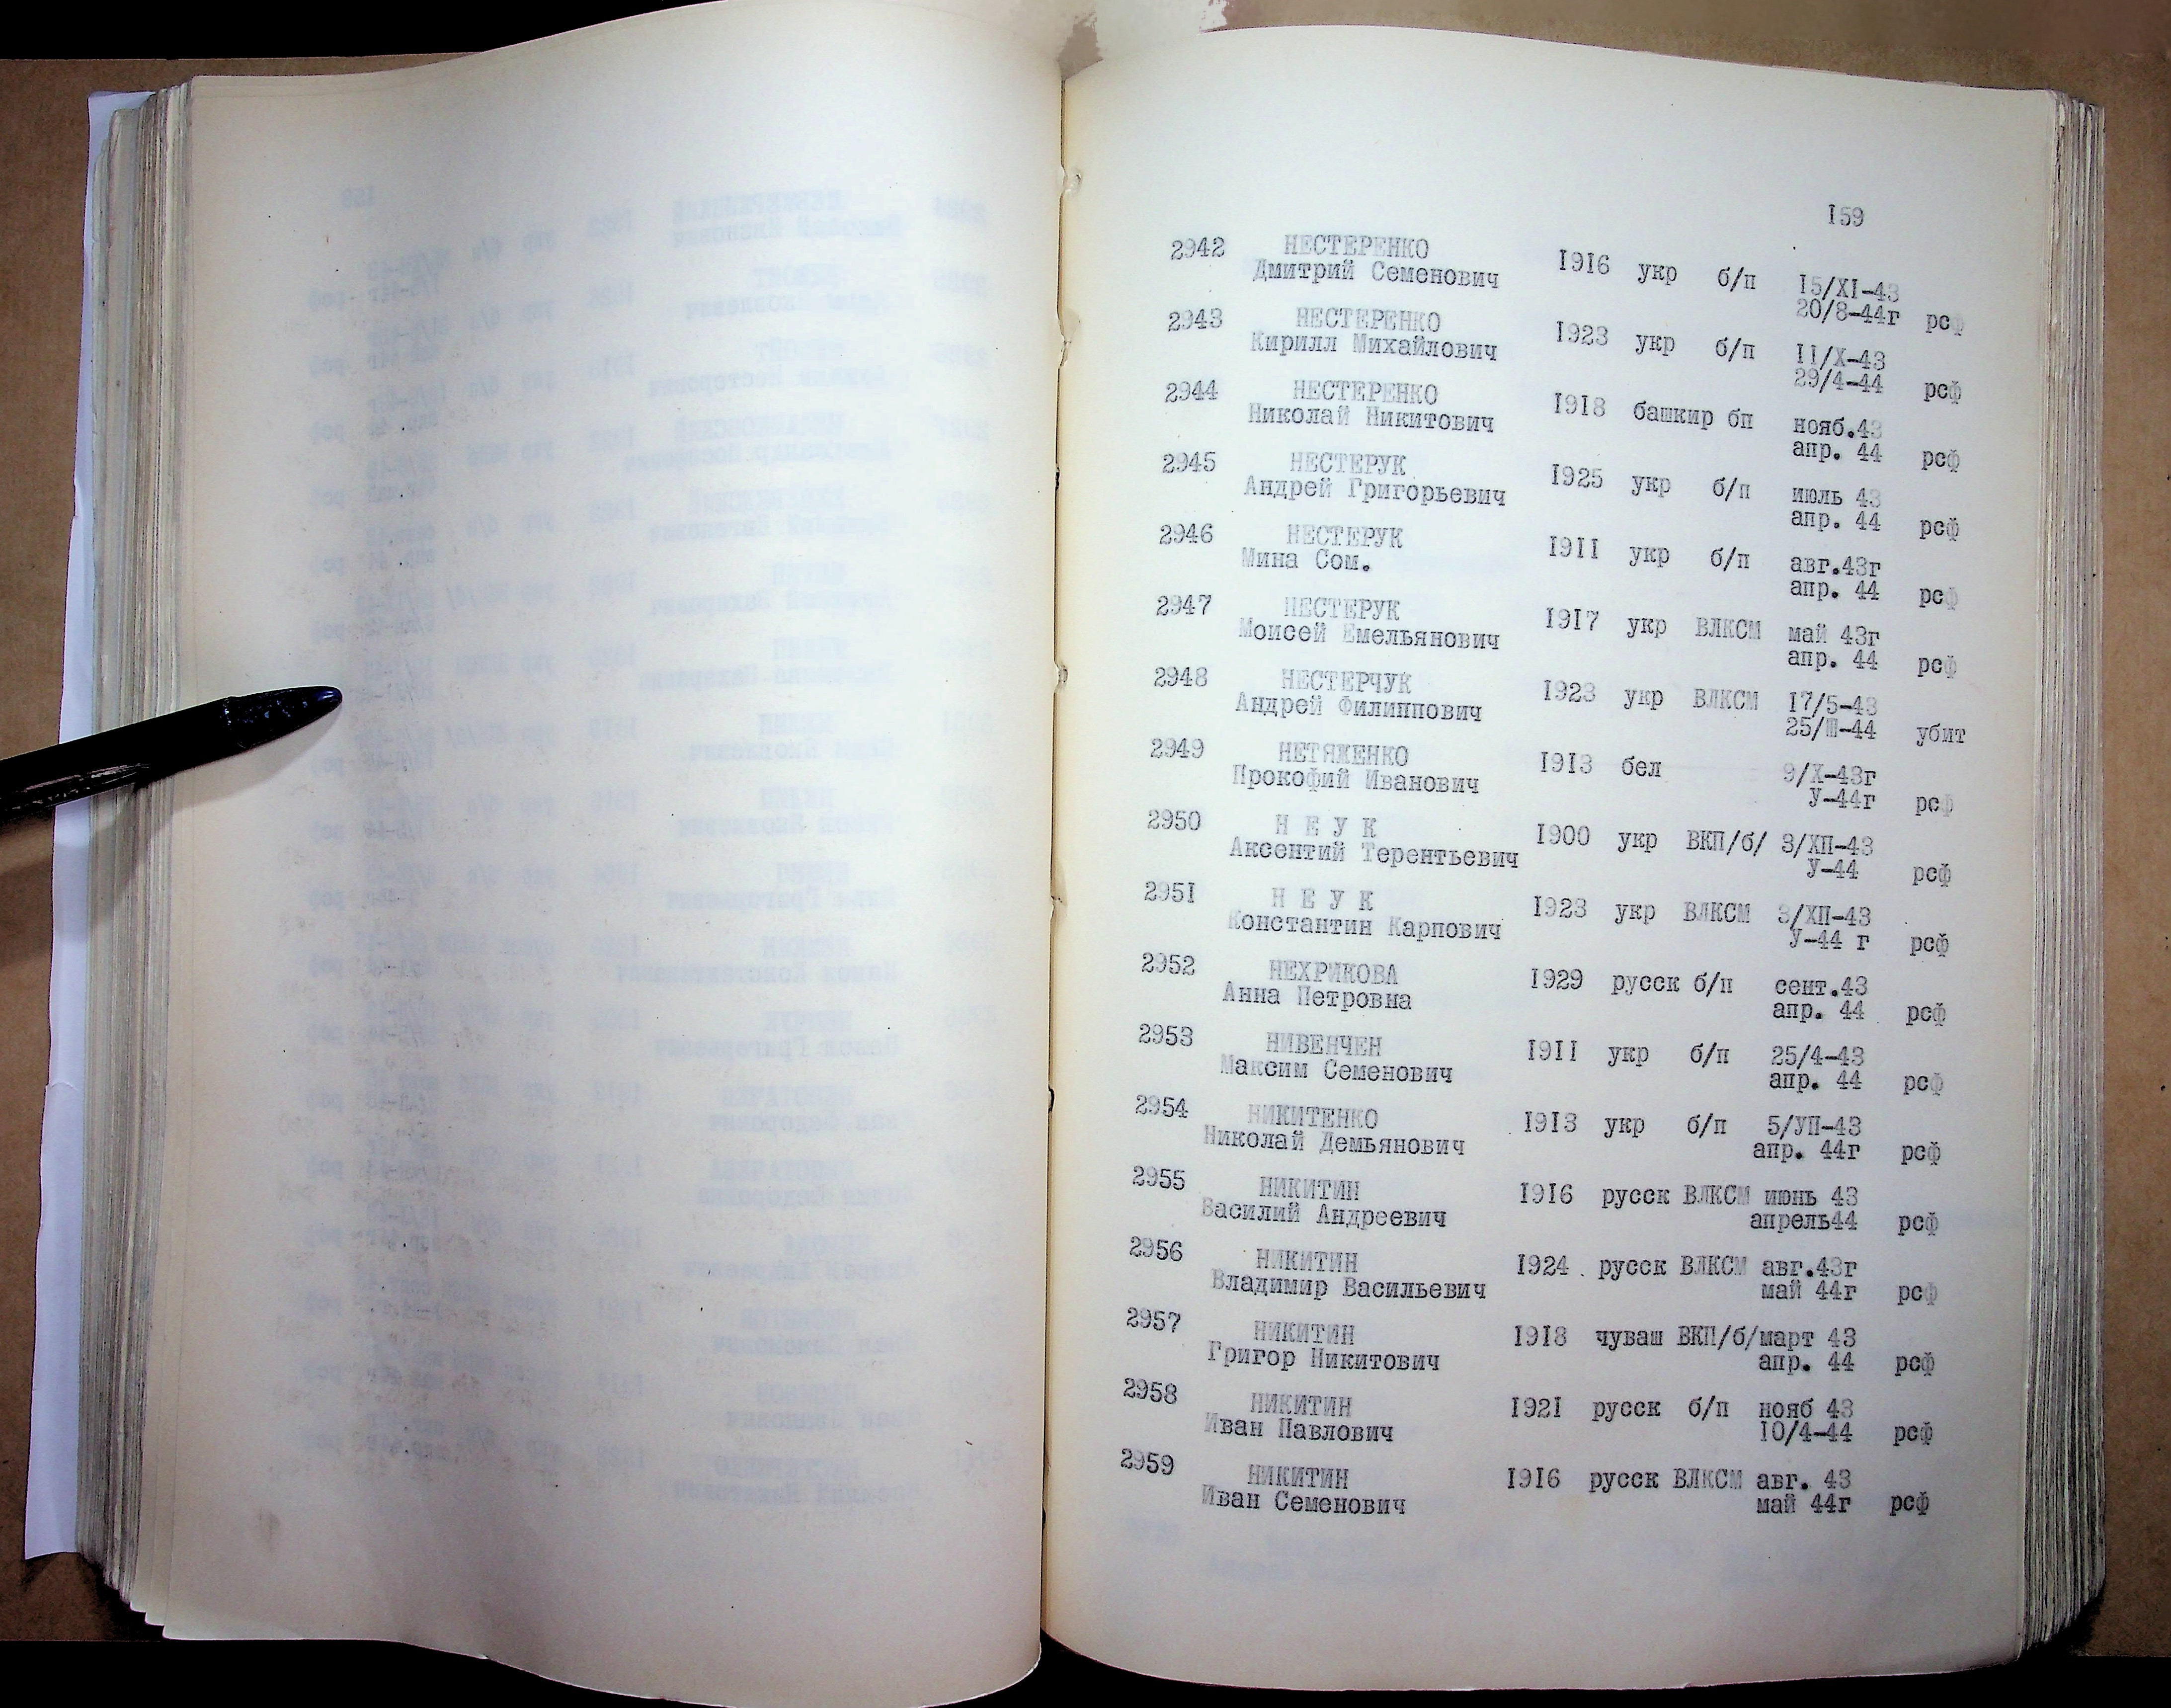 159
2942 НЕСТЕРЕНКО
Дмитрий Семенович 1916 укр б/п 15/XI-43
20/8-44г рсф
2943 НЕСТЕРЕНКО
Кирилл Михайлович 1923 укр б/п 11/X-43
29/4-44 рсф
2944 НЕСТЕРЕНКО
Николай Никитович 1918 башкир бп нояб.43
апр. 44 рсф
2945 НЕСТЕРУК
Андрей Григорьевич 1925 укр б/п июль 43
апр. 44 рсф
2946 НЕСТЕРУК
Мина Сом. 1911 укр б/п авг.43г
апр. 44 рсф
2947 НЕСТЕРУК
Моисей Емельянович 1917 укр ВЛКСМ май 43г
апр. 44 рсф
2948 НЕСТЕРЧУК
Андрей Филиппович 1923 укр ВЛКСМ 17/5-43
25/Ш-44 убит
2949 НЕТЯЖЕНКО
Прокофий Иванович 1913 бел 9/X-43г
У-44г рсф
2950 Н Е У К
Аксентий Терентьевич 1900 укр ВКП/б/ 3/ХП-43
У-44 рсф
2951 Н Е У К
Константин Карпович 1923 укр ВЛКСМ 3/ХП-43
У-44 г рсф
2952 НЕХРИКОВА
Анна Петровна 1929 русск б/п сент.43
апр. 44 рсф
2953 НИВЕНЧЕН
Максим Семенович 1911 укр б/п 25/4-43
апр. 44 рсф
2954 НИКИТЕНКО
Николай Демьянович 1913 укр б/п 5/УП-43
апр. 44г рсф
2955 НИКИТИН
Василий Андреевич 1916 русск ВЛКСМ июнь 43
апрель44 рсф
2956 НИКИТИН
Владимир Васильевич 1924 русск ВЛКСМ авг.43г
май 44г рсф
2957 НИКИТИН
Григор Никитович 1918 чуваш ВКП/б/март 43
апр. 44 рсф
2958 НИКИТИН
Иван Павлович 1921 русск б/п нояб 43
10/4-44 рсф
2959 НИКИТИН
Иван Семенович 1916 русск ВЛКСМ авг. 43
май 44г рсф